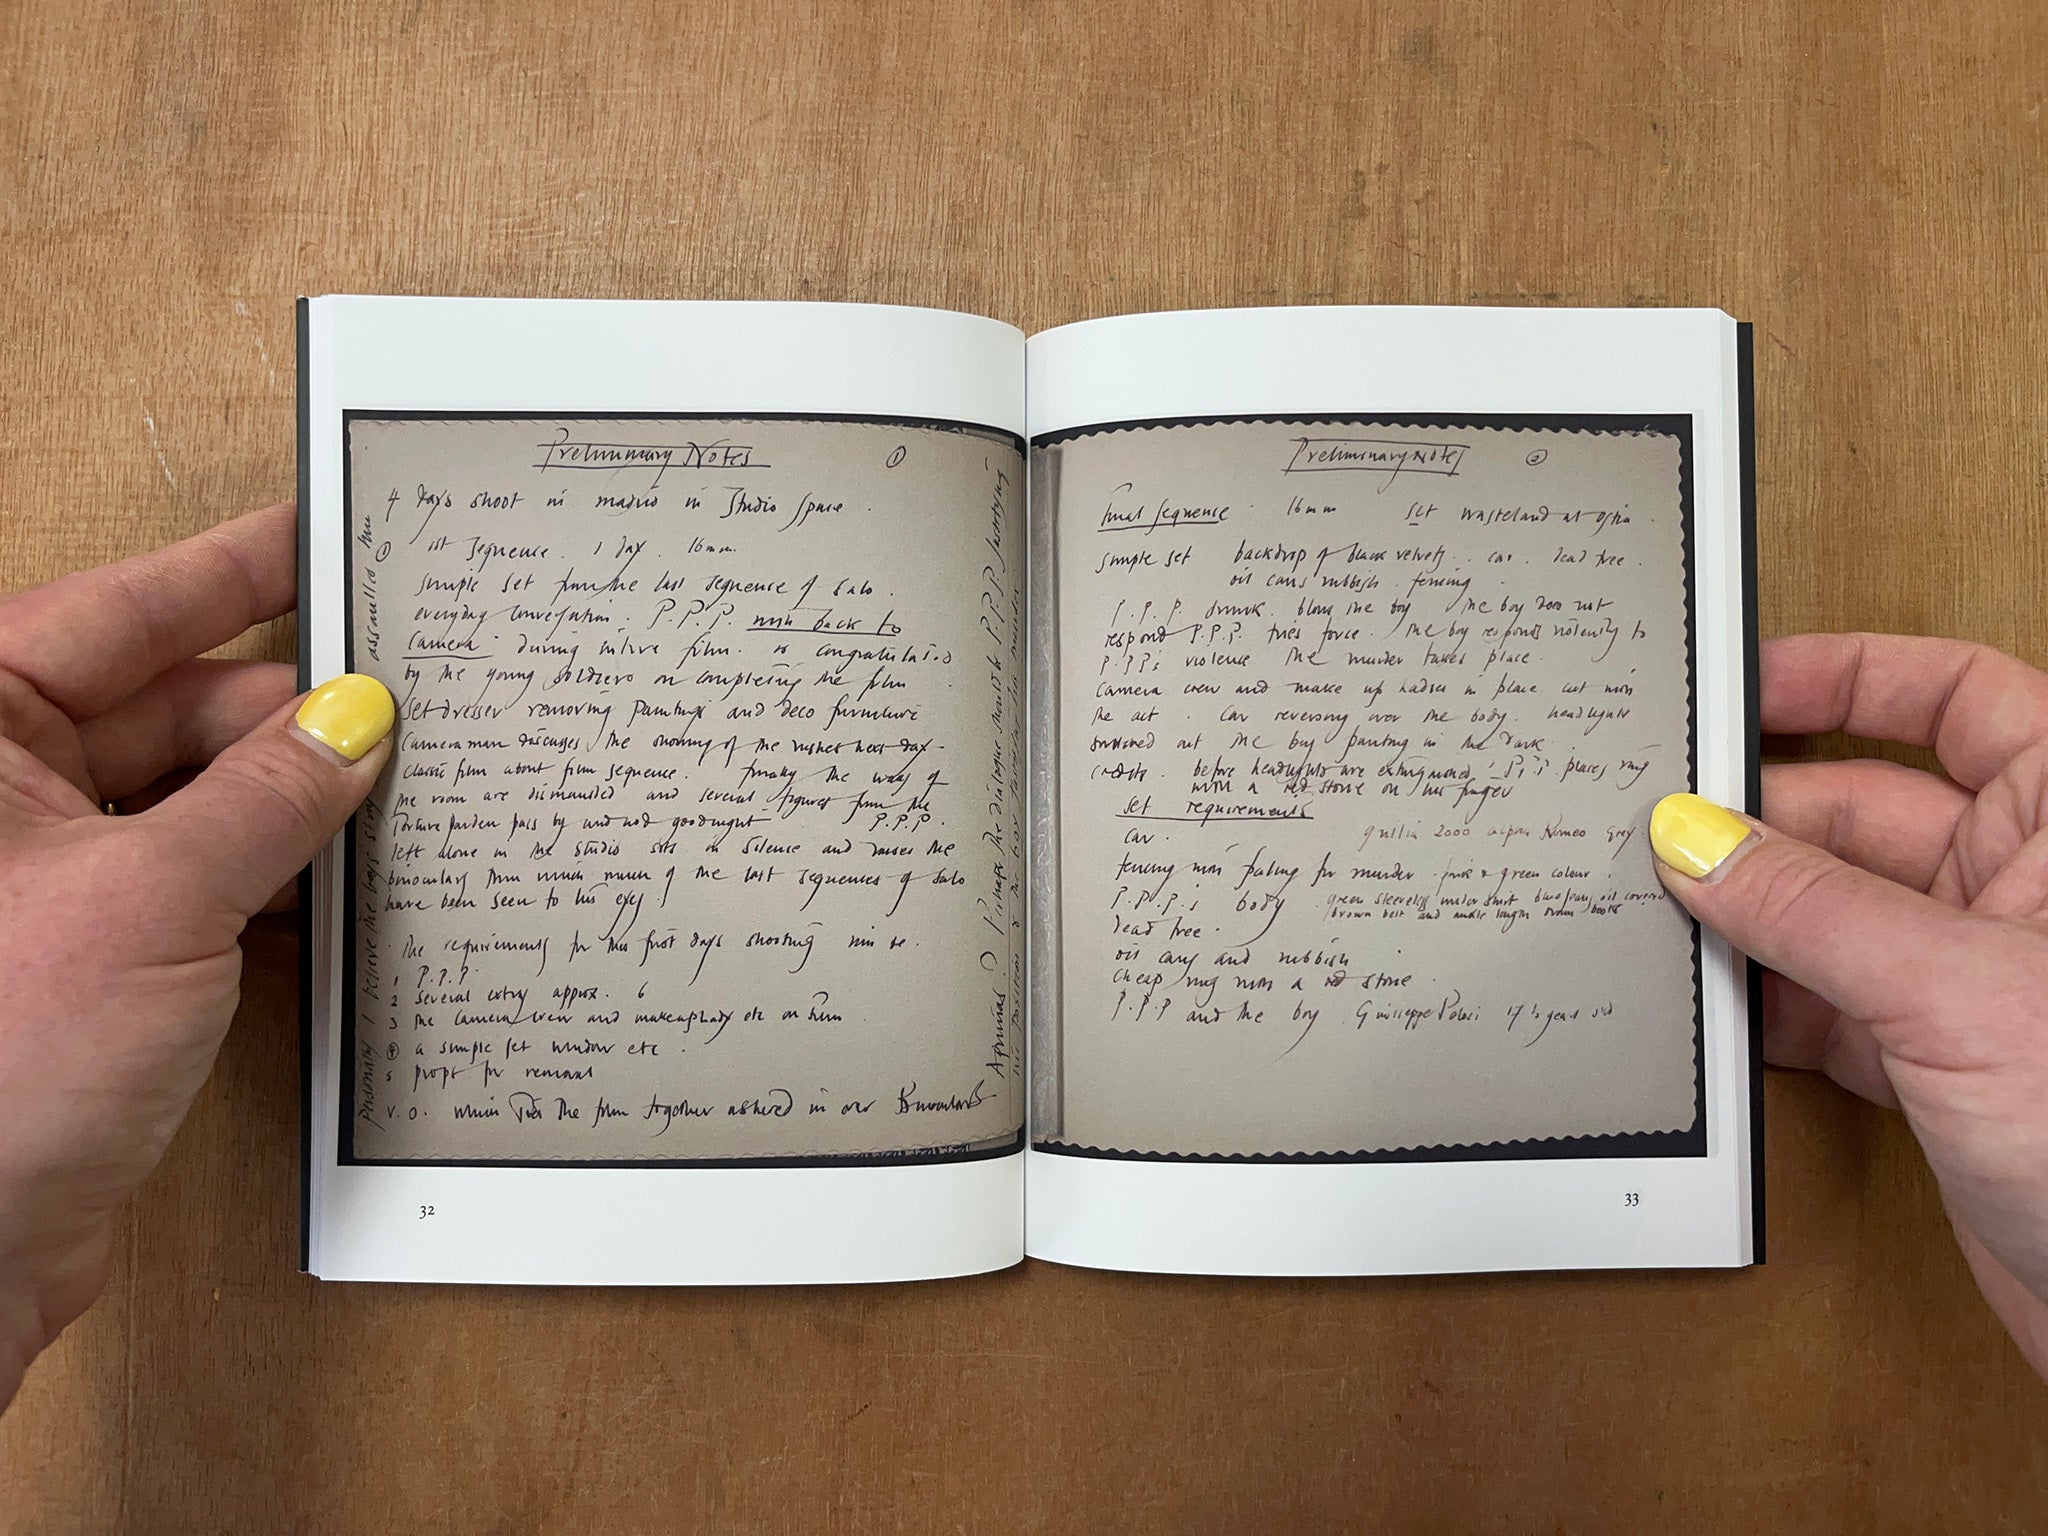 Preliminary Notes
1
4 days shoot in madrid in Studio Space.
1st Sequence. 1 day. 16mm.
simple set from the last sequence of Salo.
everyday conversation. P.P.P. with back to
camera during entire film. is congratulated
by the young soldiers on completing the film
Set dresser removing paintings and deco furniture
Cameraman discusses the showing of the rushes next day
classic film about film sequence. finally the walls of
the room are dismantled and several figures from the
Torture garden pass by and nod goodnight P.P.P.
left alone in the studio sits in silence and raises the
binoculars thru which much of the last sequences of Salo
have been seen to his eyes
The requirements for this first days shooting will be.
1 P.P.P.
2 several extras approx. 6
3 the camera crew and makeup lady etc on film
4 a simple set window etc.
5 props for removal
V.O. which ties the film together asked in our Binoculars
Personally I believe the boys story
assaulted him
Perhaps the dialogue should be P.P.P. justifying
his position & the boy
32
Preliminary Notes
2
final sequence. 16mm set wasteland at Ostia.
simple set backdrop of black velvets. car. dead tree.
oil cans rubbish. fencing.
P.P.P. drunk. blows the boy the boy does not
respond P.P.P. tries force. the boy responds violently to
P.P.P's violence the murder takes place.
camera crew and make up ladies in place cut with
the act. car reversing over the body. headlights
switched out the boy panting in the dark.
credits. before headlights are extinguished P.P.P. places ring
with a red stone on his finger
set requirements
car. guilia 2000 alpha Romeo Grey
fencing with paling for murder. pink & green colour.
P.P.P.'s body green sleeveless under shirt blue jeans oil covered
brown belt and ankle length brown boots
dead tree.
oil cans and rubbish
cheap ring with a red stone.
P.P.P and the boy Guisseppe Pelosi 17 1/2 years old
33